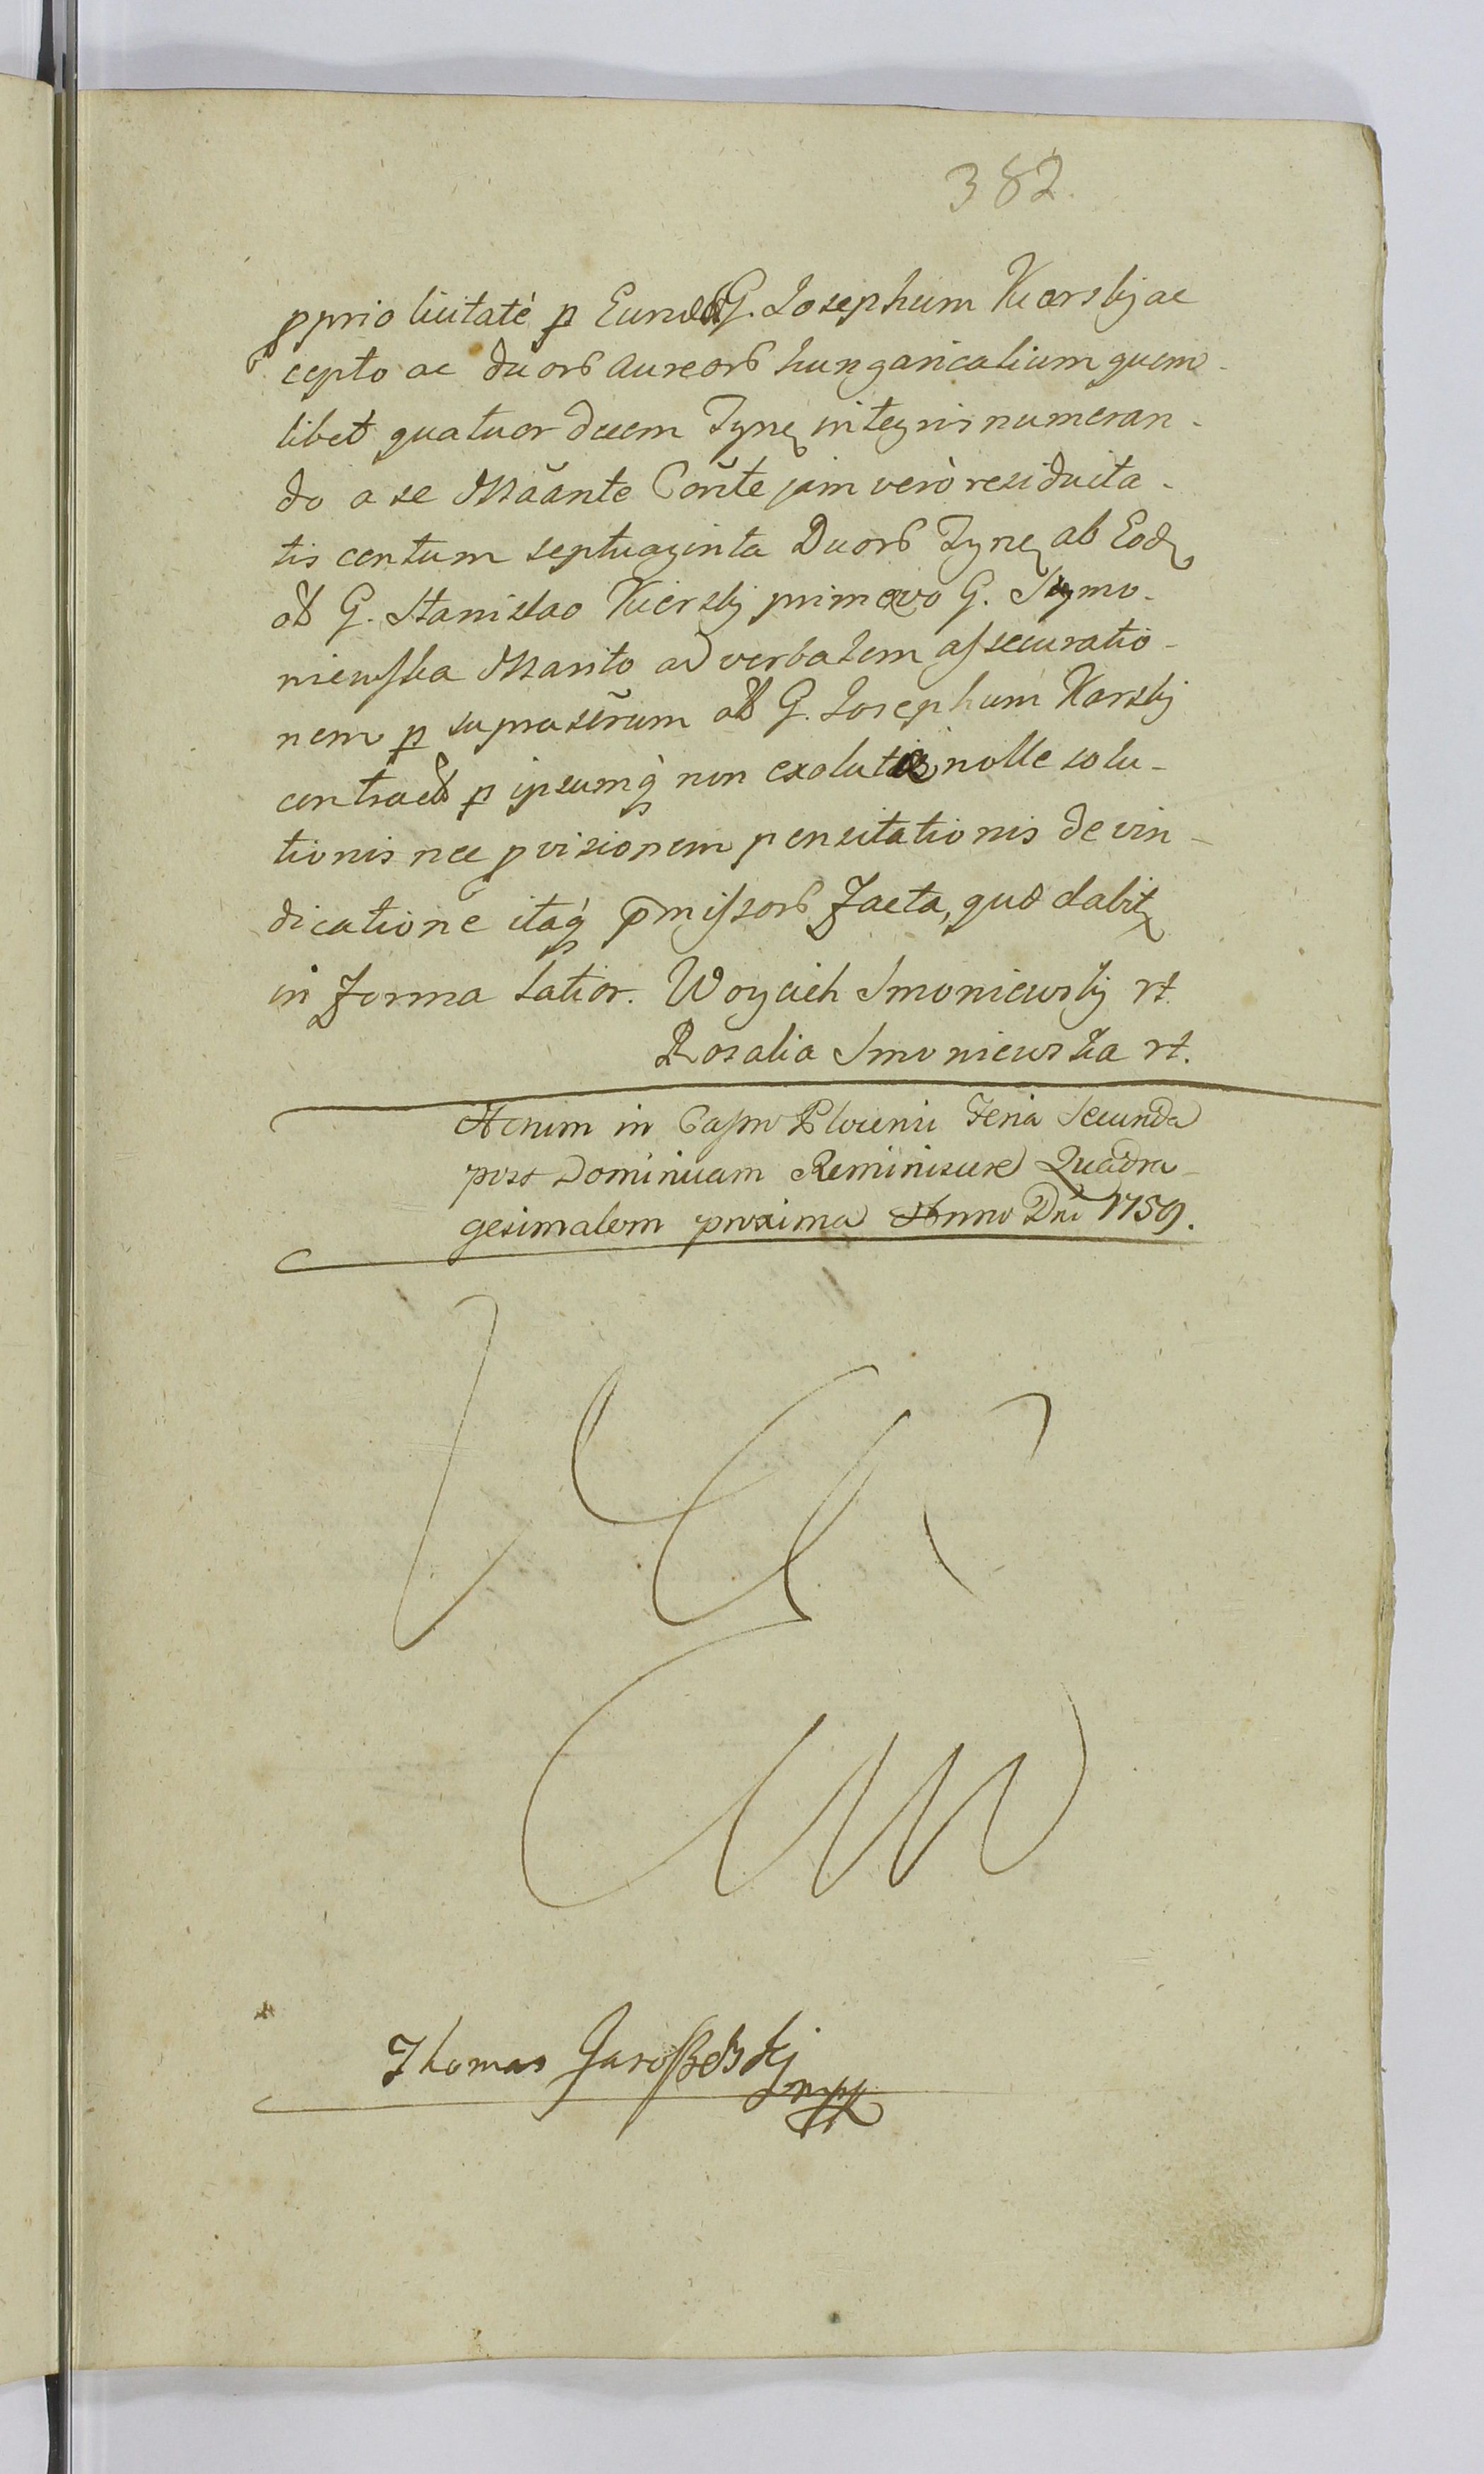 382.
pprio licitate p Eund G. Josephum Kiersky ac
cepto ac duor aureor hungaricalium quem-
libet quatuor decem Tynf integris numeran-
do a se Mãante Coñte jam verò residuita-
tis centum septuaginta Duor Tynf ab Eod
G. Stanislao Kiersky primævo G. Symo-
niewska Marito ad verbalem assecuratio-
nem p suprascrum G. Josephum Karsky
contract p ipsumq non exoluta nolle solu-
tionis nec pvisionem pensitationis de vin-
dicatione itaq pmissor Facta, quod dabit
in Forma latior. Woyciech Smoniewsky rt.
Rosalia Smoniewska rt.
Actum in Castro Plocensi Feria Secunda
post Dominicam Reminiscere Quadra-
gesimalem proxima Anno Dni 1759.
Thomas mpp